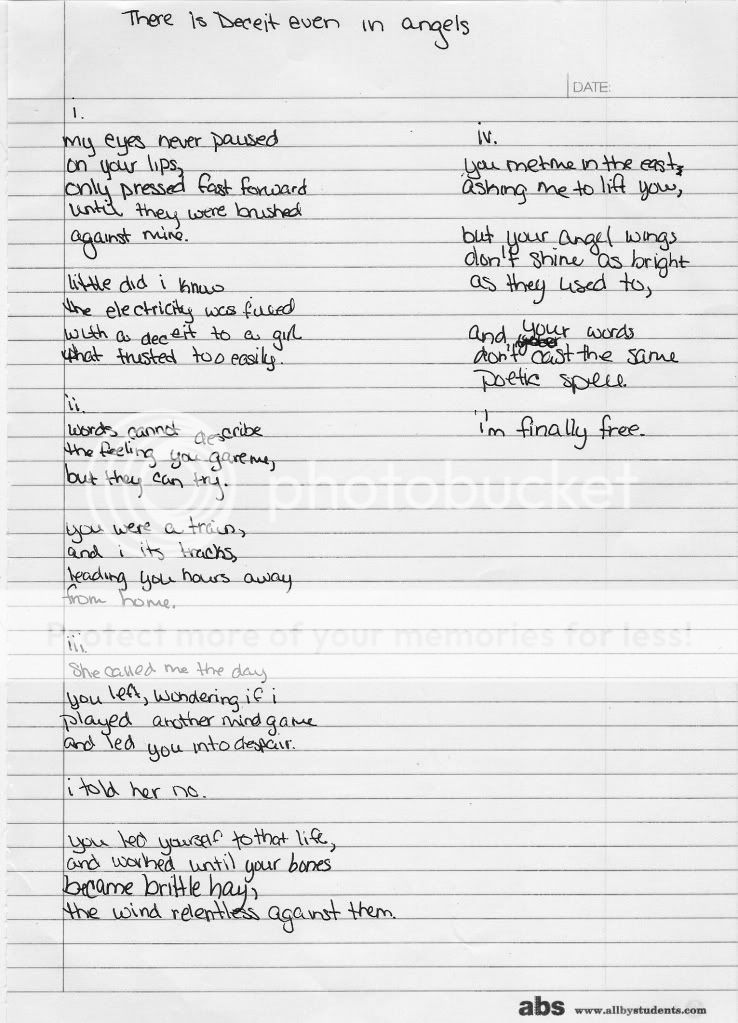 There is Deceit even in angels
DATE:
i.
my eyes never paused
on your lips,
only pressed fast forward
until they were brushed
against mine.
little did i know
the electricity was fused
with a deceit to a girl
that trusted too easily.
ii.
words cannot describe
the feeling you gave me,
but they can try.
you were a train,
and i its tracks,
leading you hours away
from home.
iii.
She called me the day
you left, wondering if i
played another mind game
and led you into despair.
i told her no.
you led yourself to that life,
and worked until your bones
became brittle hay,
the wind relentless against them.
iv.
you met me in the east,
asking me to lift you,
but your angel wings
don't shine as bright
as they used to,
and your words
don't cast the same
poetic spell.
i'm finally free.
photobucket
Protect more of your memories for less!
abs www.allbystudents.com